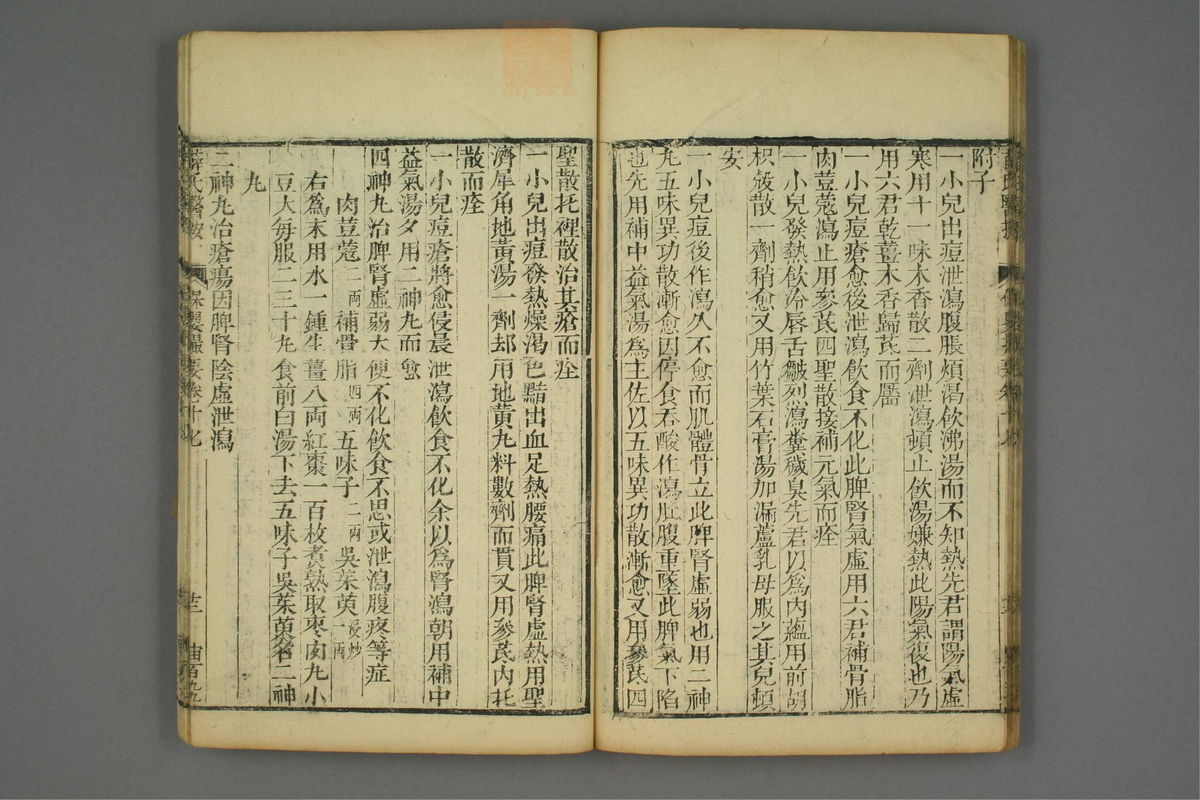 附子
一小兒出痘泄瀉腹脹煩渴飲沸湯而不知熱先君謂陽氣虛
寒用十一味木香散二劑泄瀉頓止飲湯嫌熱此陽氣復也乃
用六君乾薑木香歸芪而靨
一小兒痘瘡愈後泄瀉飲食不化此脾腎氣虛用六君補骨脂
肉荳蔻瀉止用參芪四聖散接補元氣而痊
一小兒發熱飲冷唇舌皺烈瀉糞穢臭先君以為內蘊用前胡
枳殼散一劑稍愈又用竹葉石膏湯加漏蘆乳母服之其兒頓
安
一小兒痘後作瀉久不愈而肌體骨立此脾腎虛弱也用二神
丸五味異功散漸愈因停食吞酸作瀉肚腹重墜此脾氣下陷
也先用補中益氣湯爲主佐以五味異功散漸愈又用參芪四
聖散托裡散治其瘡而痊
一小兒出痘發熱燥渴色黯出血足熱腰痛此脾腎虛熱用聖
濟犀角地黃湯一劑却用地黃丸料數劑而貫又用參芪內托
散而痊
一小兒痘瘡將愈侵晨泄瀉飲食不化余以爲腎瀉朝用補中
益氣湯夕用二神丸而愈
四神丸治脾腎虛弱大便不化飲食不思或泄瀉腹疼等症
肉荳蔻二兩補骨脂四兩五味子二兩吳茱萸浸炒一兩
右爲末用水一鍾生薑八兩紅棗一百枚煮熟取棗肉丸小
豆大每服二三十丸食前白湯下去五味子吳茱萸名二神
丸
二神丸治瘡瘍因脾腎陰虛泄瀉
薛氏醫按
保嬰撮要卷十七